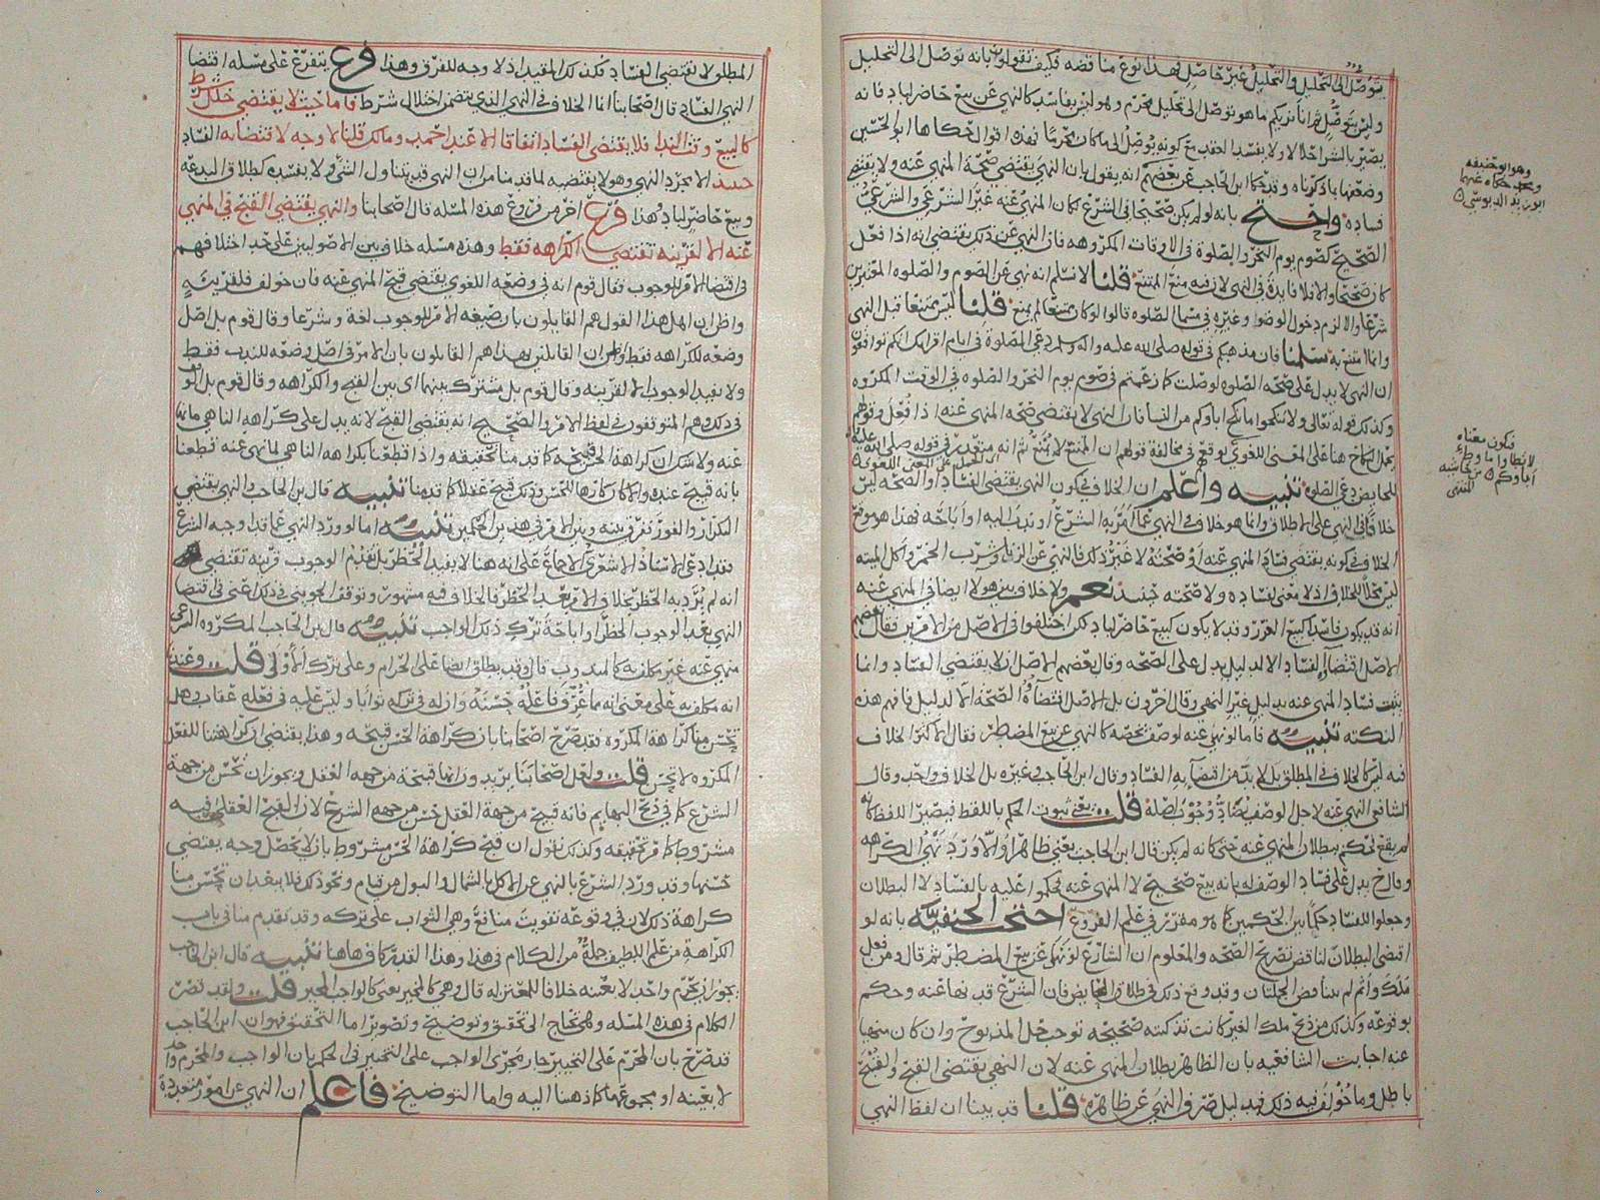 يتوصل الى التحليل والتحليل غير حاصل فهذا نوع مناقضه فكيف تقولون بانه توصل الى التحليل
وليس بتوصل ثم انا نريكم ما هو توصل الى تحليل محرم وهو ليس بفاسد كالنهي عن بيع حاضر لباد فانه
يصير بالشراء حلالا ولا يفسد العقد مع كونه يوصل الى ما كان محرما فهذه اقوال حكاها ابو الحسين
وضعفها بما ذكرناه وقد حكا ابن الحاجب عن بعضهم انه يقول بان النهي يقتضي صحة المنهي عنه ولا يقتضي
فساده واحتج بانه لو لم يكن صحيحا في الشرع لكان المنهي عنه غير الشرعي والشرعي
الصحيح كصوم يوم النحر والصلوة في الاوقات المكروهه فان النهي عن ذلك يقتضي انه اذا فعل
كان صحيحا والا فلا فايدة في النهي لانه منع الممتنع قلنا لا نسلم انه نهي عن الصوم والصلوه المعتبرين
شرعا والا لزم دخول الوضوا وغيره في مسما الصلوه قالوا لو كان ممتنعا لم يمنع قلنا ليس ممتنعا قبل النهي
وانما امتنع به سلمنا فان مذهبكم في قوله صلى الله عليه واله وسلم دعي الصلوة في ايام اقرايك انكم توافقون
ان النهي لا يدل على صحه الصلوه لو صلت كما زعمتم في صوم يوم النحر والصلوه في الوقت المكروه
وكذلك قوله تعالى ولا تنكحوا ما نكح اباوكم من النسا فان النهي لا يقتضي صحه المنهي عنه اذا فعل وقولهم
يحمل النكاح هنا على المعنى اللغوي يوقع في مخالفة قولهم ان الممتنع لا يمنع ثم انه متعذر في قوله صلى الله عليه
للحايض دعي الصلوه تنبيه واعلم ان الخلاف في كون النهي يقتضي الفساد او الصحه ليس
خلافا في النهي على الاطلاق وانما هو خلاف في النهي عما امر به الشرع او ندب اليه او اباحه فهذا هو موقع
الخلاف في كونه يقتضي فساد المنهي عنه او صحته لا غير ذلك فالنهي عن الزنا وشرب الخمر واكل الميته
ليس محلا للخلاف اذ لا معنى لفساده ولا صحته حينئذ نعم ولا خلاف بين هولا ايضا في المنهي عنه
انه قد يكون فاسدا كبيع الغرر وقد لا يكون كبيع حاضر لباد لكن اختلفوا في الاصل من الامرين فقال بعضهم
الاصل اقتضاء الفساد الا لدليل يدل على الصحه وقال بعضهم الاصل ان لا يقتضي الفساد وانما
يثبت فساد المنهي عنه بدليل غير النهي وقال اخرون بل الاصل اقتضاؤه الصحه الا لدليل فافهم هذه
النكته تنبيه فاما لو نهي عنه لوصف يخصه كالنهي عن بيع المضطر فقال الاكثر الخلاف
فيه ليس كالخلاف في المطلق بل لا بد من اقتضايه الفساد وقال ابن الحاجب وغيره بل الخلاف واحد وقال
الشافعي النهي عنه لاجل الوصف يضاد وجوب اصله قلت يعني ثبوت الحكم باللفظ فيصير اللفظ كانه
لم يقع فيحكم ببطلان المنهي عنه حتى كانه لم يكن قال ابن الحاجب يعني ظاهرا والا ورد نهي الكراهه
وقال ح يدل على فساد الوصف له بانه بيع صحيح لا المنهي عنه فحكموا عليه بالفساد لا البطلان
وجعلوا للفساد حكما بين الحكمين كما هو مقرر في علم الفروع احتجت الحنفية بانه لو
اقتضى البطلان لناقض تصريح الصحه والمعلوم ان الشارع لو نهى عن بيع المضطر ثم قال ومن فعل
ملك واثم لم يتناقض الجملتان وقد وقع ذلك في طلاق الحايض فان الشرع قد نها عنه وحكم
بوقوعه وكذلك من ذبح ملك الغير كانت تذكيته صحيحه توجب حل المذبوح وان كان منهيا
عنه اجابت الشافعيه بان الظاهر بطلان المنهي عنه لان النهي يقتضي القبح والقبيح
باطل وما خولف فيه ذلك فبدليل صرف النهي عن ظاهره قلنا قد بينا ان لفظ النهي
وهو ابو حنيفه
ومحمد حكاه عنهما
ابو زيد الدبوسي
فيكون معناه
لا تطاوا ما وطئ
اباوكم من حاشيه
المطلق لا يقتضي الفساد فكذلك المقيد اذ لا وجه للفرق وهذا فرع يتفرع على مسله اقتضا
النهي الفساد قال اصحابنا انما الخلاف في النهي الذي يتضمن اختلال شرط فاما حيث لا يقتضي خلل شرط
كالبيع وقت الندا فلا يقتضي الفساد اتفاقا الا عند احمد ومالك قلنا لا وجه لاقتضائه الفساد
حينئذ الا مجرد النهي وهو لا يقتضيه لما قدمنا من ان النهي قد يتناول الشي ولا يفسده كطلاق البدعه
وبيع حاضر لباد وهذا فرع اخر من فروع هذه المسله قال اصحابنا والنهي يقتضي القبح في المنهي
عنه الا لقرينه تقتضي الكراهه فقط وهذه مسله خلاف بين الاصوليين على حد اختلافهم
في اقتضا الامر للوجوب فقال قوم انه في وضعه اللغوي يقتضي قبح المنهي عنه فان خولف فلقرينة
واظن ان اهل هذا القول هم القايلون بان صيغه الامر للوجوب لغة وشرعا وقال قوم بل اصل
وضعه للكراهه فقط واظن ان القايلين بهذا هم القايلون بان الامر في اصل وضعه للندب فقط
ولا يفيد الوجوب الا لقرينه وقال قوم بل مشترك بينهما اى بين القبح والكراهه وقال قوم بل الوقف
في ذلك وهم المتوقفون في لفظ الامر والصحيح انه يقتضي القبح لانه يدل على كراهه الناهي ما نها
عنه ولا شك ان كراهة الحسن قبيحه كما قدمنا تحقيقه واذا قطعنا بكراهه الناهي لما نهى عنه قطعنا
بانه قبيح عنده والا كان كارها للحسن وذلك قبيح عقلا كما قدمنا تنبيه قال ابن الحاجب والنهي يقتضي
التكرار والفور نفرق بينه وبين الامر في هذين الحكمين تنبيه اما لو ورد النهي عما قد اوجبه الشرع
فقد ادعى الاستاذ الاشعري الاجماع على انه هنا لا يفيد الحظر بل تقديم الوجوب قرينه تقتضي
انه لم يرد به الحظر بخلاف الامر بعد الحظر فالخلاف فيه مشهور وتوقف الجويني في ذلك اعني في اقتضا
النهي بعد الوجوب الحظر او اباحة ترك ذلك الواجب تنبيه قال ابن الحاجب المكروه الشرعي
منهي عنه غير مكلف به كالمندوب قال وقد يطلق ايضا على الحرام وعلى ترك الاولى قلت وعندنا
انه مكلف به على معنى انه ما عرف فاعله حسنه وان له في تركه ثوابا وليس عليه في فعله عقاب وهل
تحسن منا كراهة المكروه فقد صرح اصحابنا بان كراهة الحسن قبيحه وهذا يقتضي ان كراهتنا للفعل
المكروه لا تحسن قلت ولعل اصحابنا يريدون انها قبيحة من جهه العقل ويجوز ان تحسن من جهة
الشرع كما في ذبح البهايم فانه قبيح من جهة العقل حسن من جهه الشرع لان القبح العقلي فيه
مشروط كما مر تحقيقه وكذلك نقول ان قبح كراهة الحسن مشروط بان لا يحصل وجه يقتضي
حسنها وقد ورد الشرع بالنهي عن الاكل بالشمال والبول من قيام ونحو ذلك فلا يبعد ان تحسن منا
كراهة ذلك لان في وقوعه تفويت منافع وهي الثواب على تركه وقد تقدم منا في باب
الكراهة من علم اللطيف جملة من الكلام في هذا وهذا القدر كاف هاهنا تنبيه قال ابن الحاجب
يجوز ان يحرم واحد لا بعينه خلافا للمعتزله قال وهي كالمخير يعني كالواجب المخير قلت ولقد قصر
الكلام في هذه المسله وهي تحتاج الى تحقيق وتوضيح وتصوير اما التحقيق فهو ان ابن الحاجب
قد صرح بان المحرم على التخيير جار مجرى الواجب على التخيير في الحكم بان الواجب والمحرم واحد
لا بعينه او مجموعهما كما ذهبنا اليه واما التوضيح فاعلم ان النهي عن امور متعددة